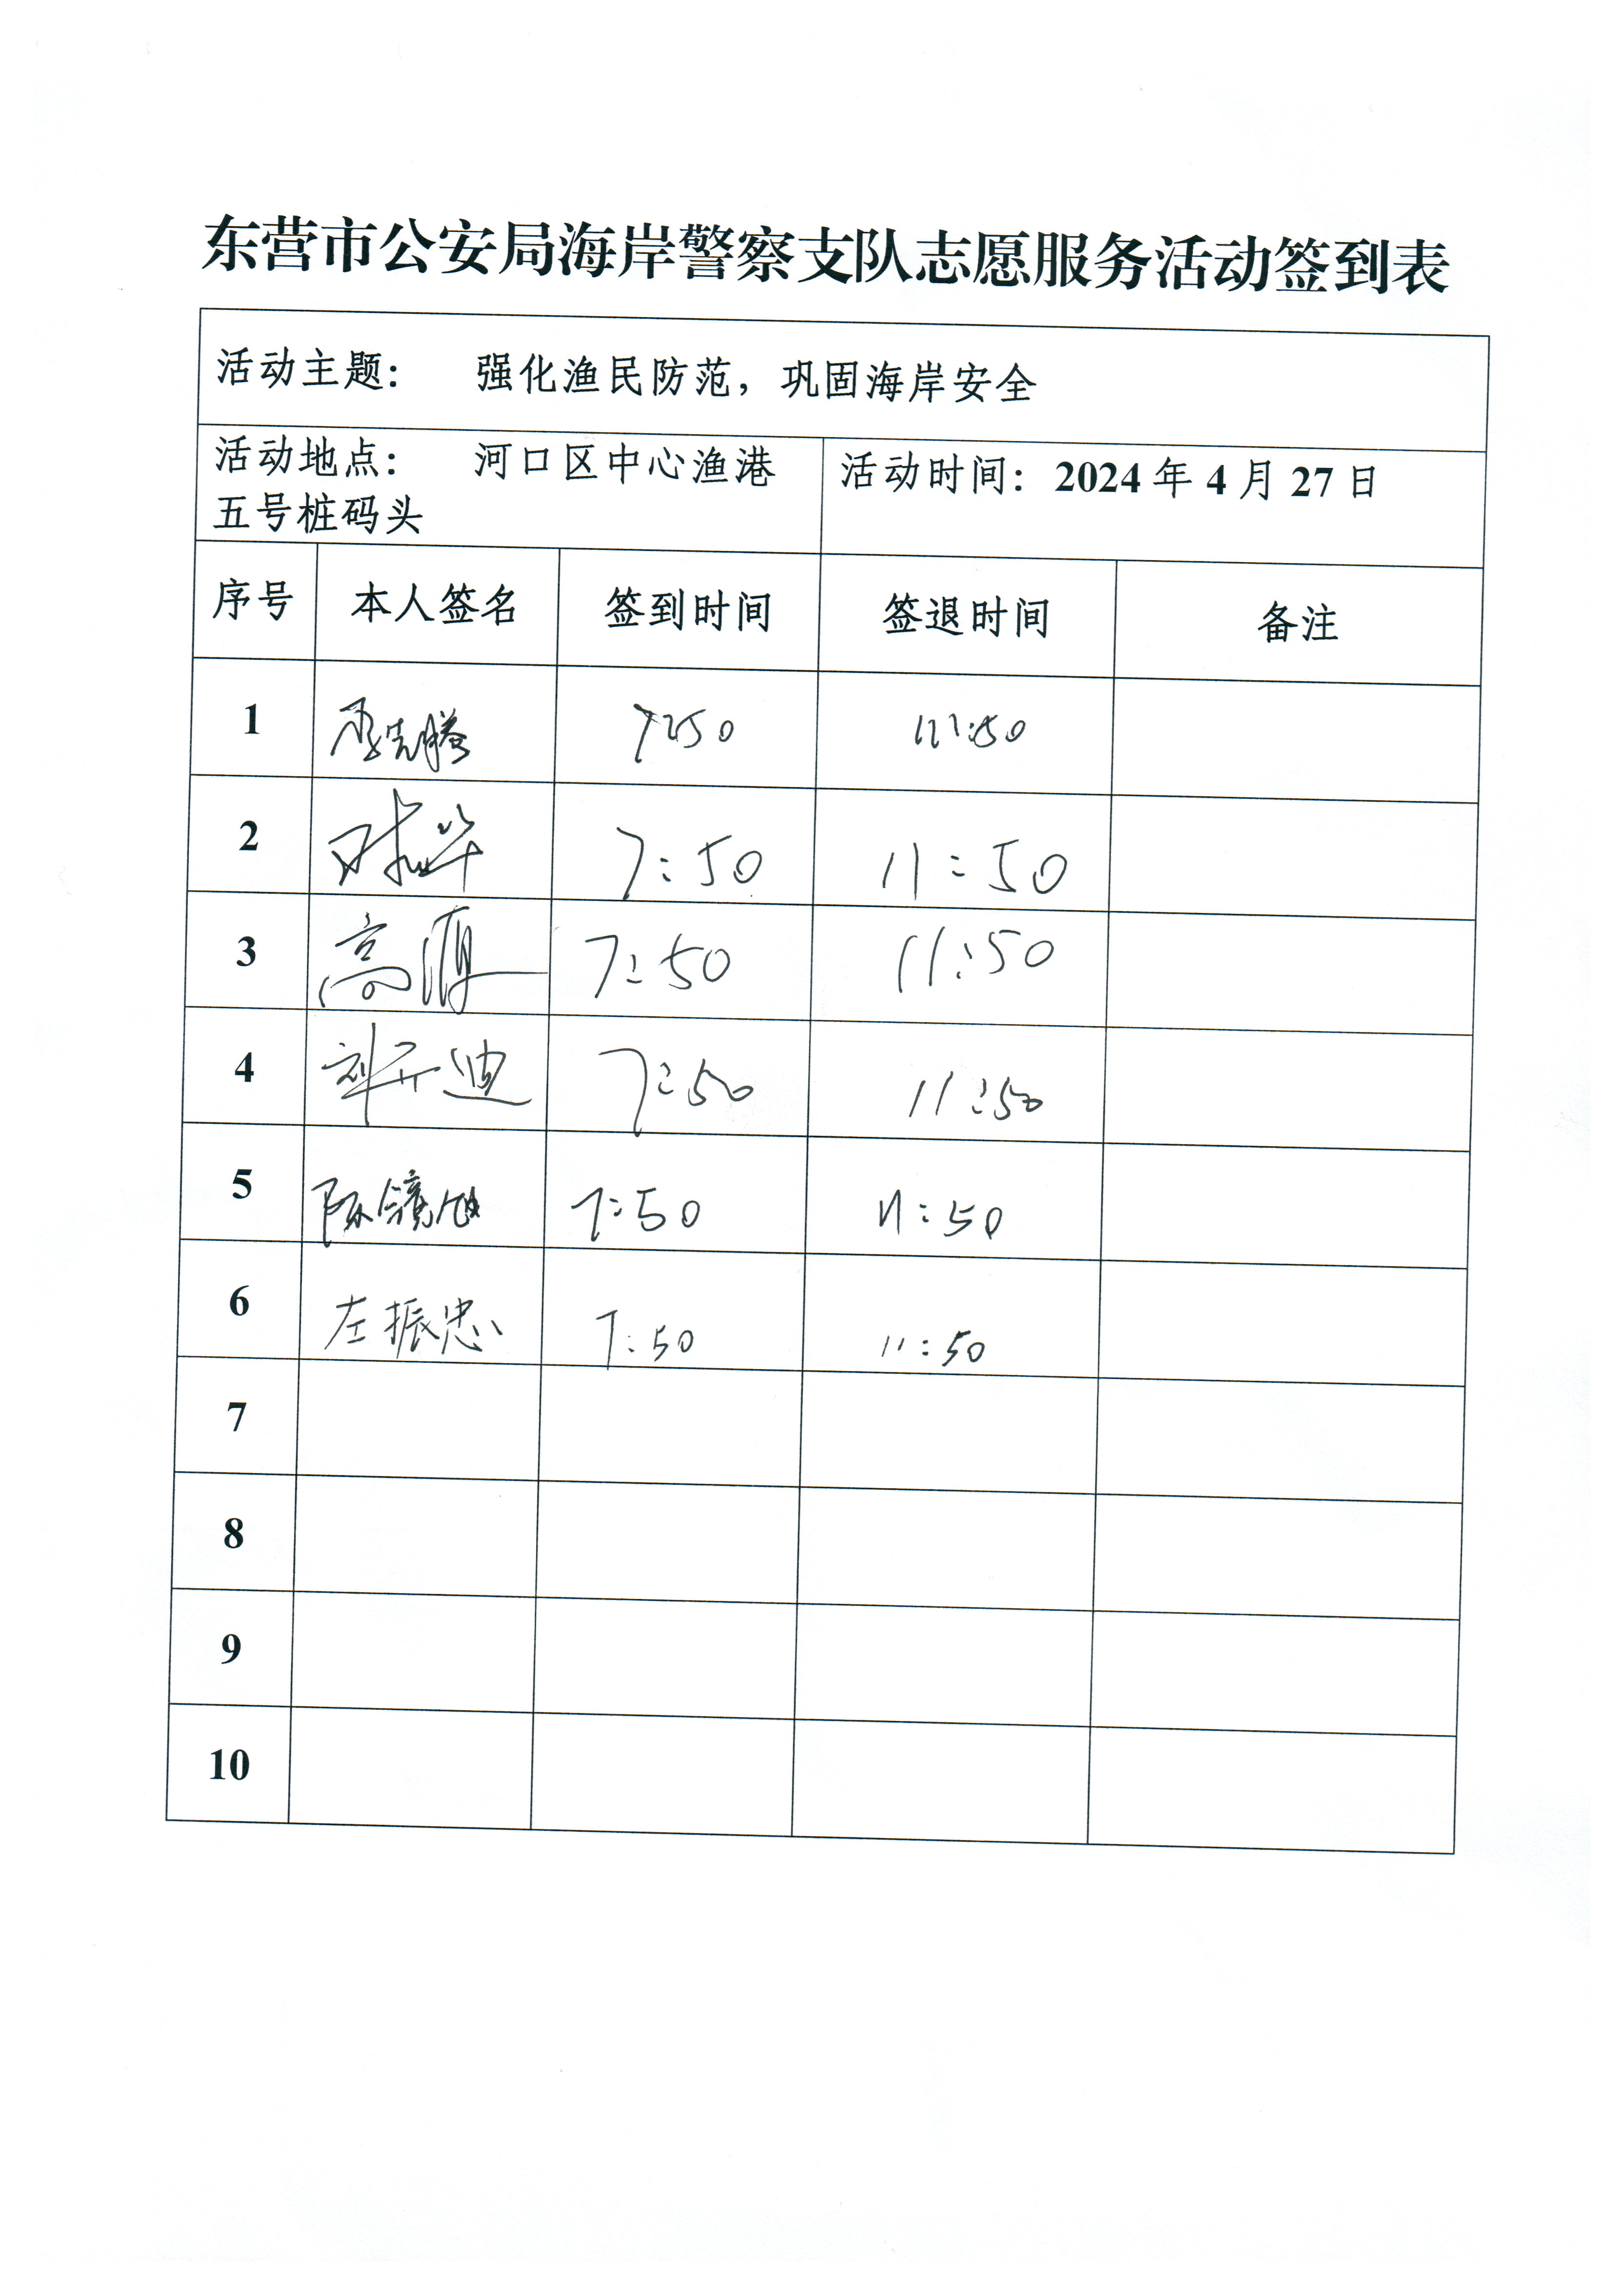 东营市公安局海岸警察支队志愿服务活动签到表
活动主题： 强化渔民防范，巩固海岸安全
活动地点： 河口区中心渔港
五号桩码头
活动时间：2024年4月27日
序号 本人签名 签到时间 签退时间 备注
1 7:50 11:50
2 7:50 11:50
3 高 7:50 11:50
4 7:50 11:50
5 陈 7:50 11:50
6 左振忠 7:50 11:50
7
8
9
10